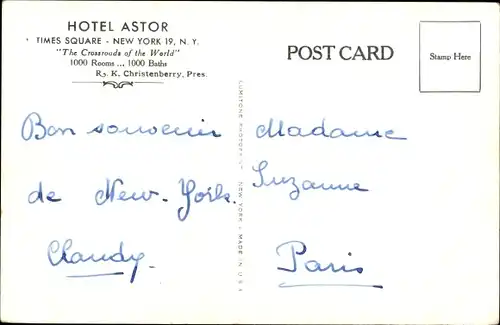 HOTEL ASTOR
TIMES SQUARE - NEW YORK 19, N. Y.
"The Crossroads of the World"
1000 Rooms ... 1000 Baths
R. K. Christenberry, Pres.
POST CARD
Stamp Here
Bon souvenir
de New-York.
Claudy.
Madame
Suzanne
Paris
LUMITONE PHOTOPRINT
NEW YORK - MADE IN U.S.A.